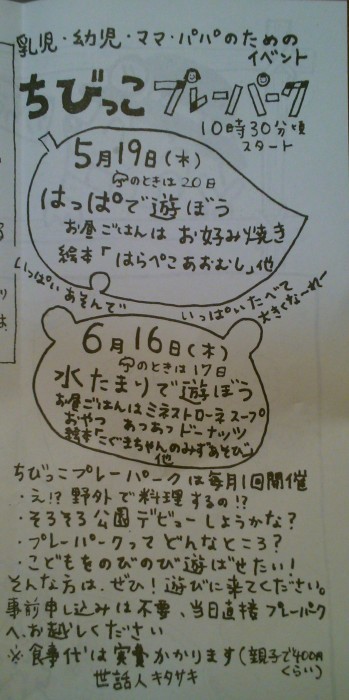 乳児・幼児・ママ・パパのための
イベント
ちびっこプレーパーク
10時30分頃
スタート
5月19日(木)
のときは20日
はっぱで遊ぼう
お昼ごはんは お好み焼き
絵本「はらぺこあおむし」他
いっぱいあそんで
いっぱいたべて
大きくなーれー
6月16日(木)
のときは17日
水たまりで遊ぼう
お昼ごはんはミネストローネスープ
おやつ あつあつドーナッツ
絵本「こぐまちゃんのみずあそび」
他
ちびっこプレーパークは毎月1回開催
・え!?野外で料理するの!?
・そろそろ公園デビューしようかな?
・プレーパークってどんなところ?
・こどもをのびのび遊ばせたい!
そんな方は、ぜひ!遊びに来てください。
事前申し込みは不要、当日直接プレーパーク
へ、お越しください
※食事代は実費かかります(親子で400円
くらい)
世話人キタザキ